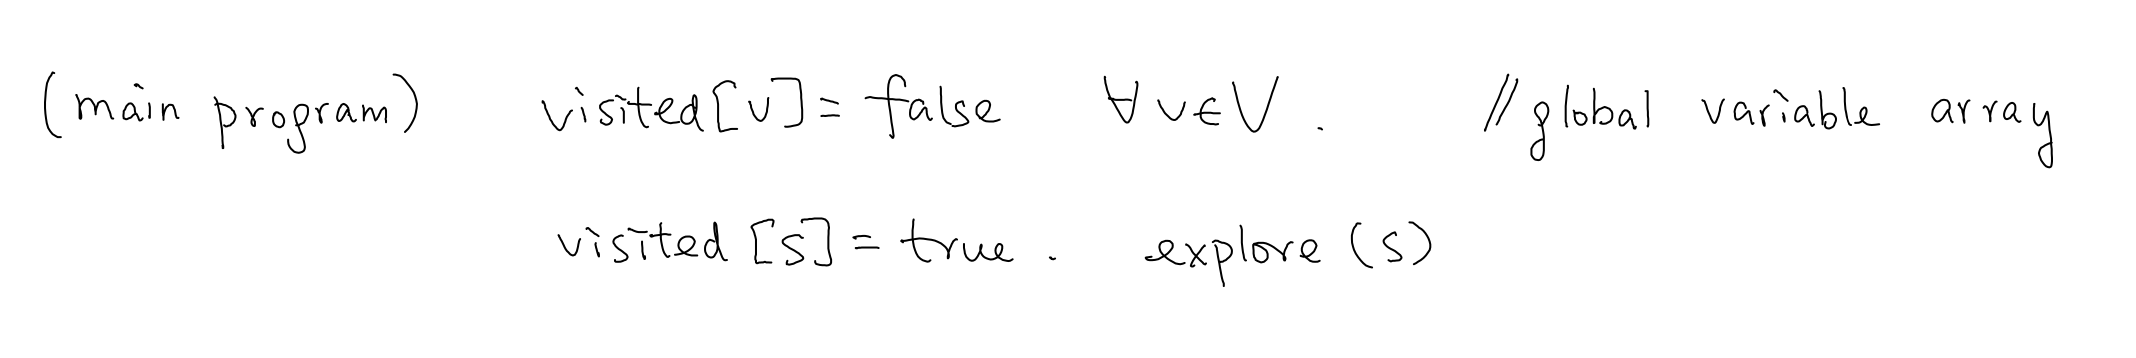 (main program) visited[v] = false ∀v∈V. // global variable array
visited[s] = true. explore(s)